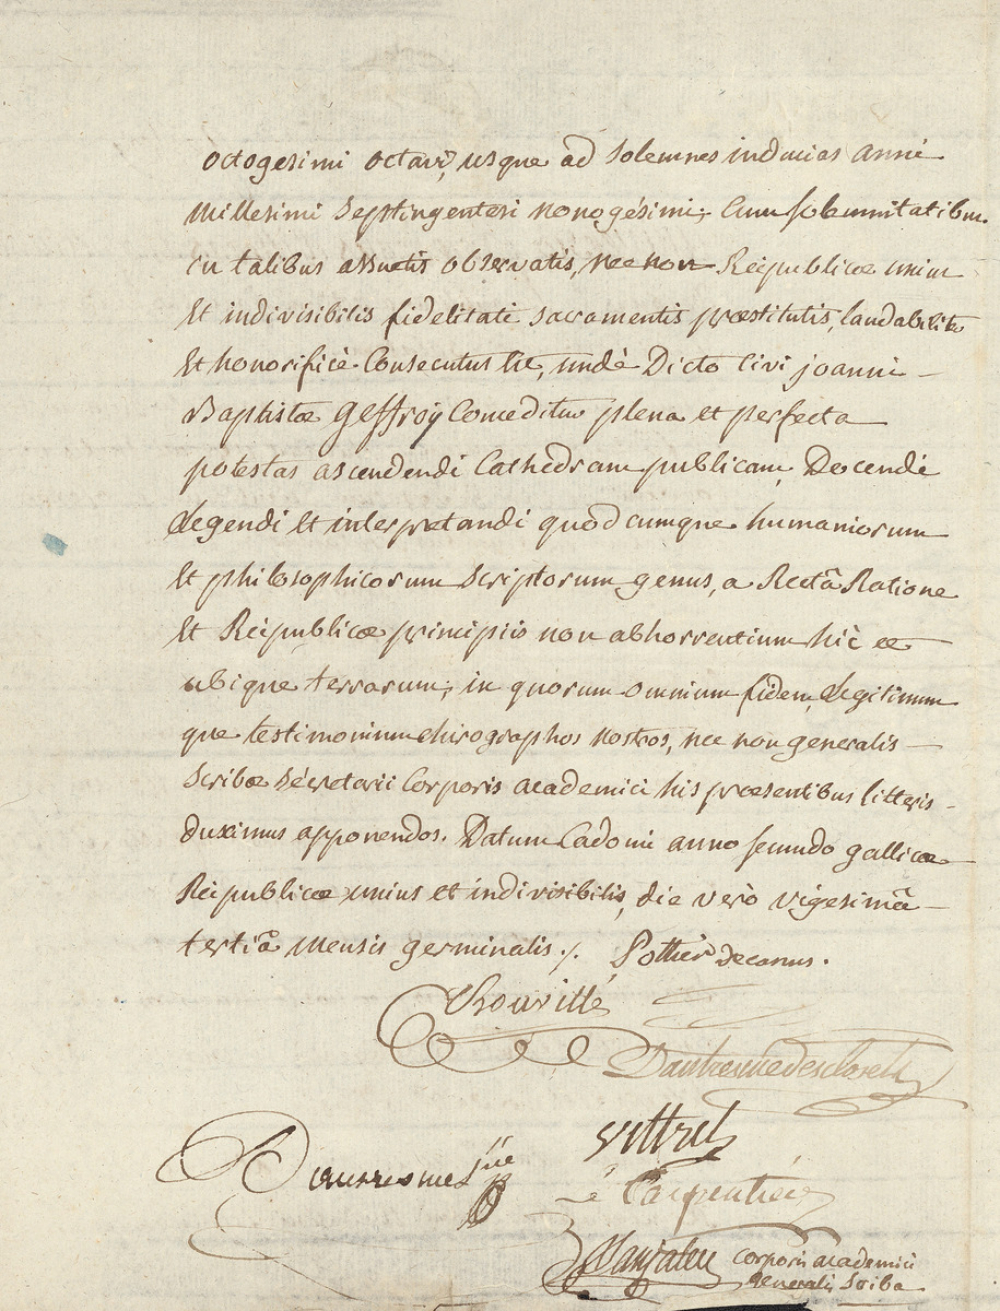 octogesimi octavi, usque ad solemnes inducias anni
Millesimi Septingentesi nonogésimi; Cum solemnitatibus.
in talibus assuetis observatis, nec non Reipublicæ unius
Et indivisibilis fidelitati sacramentis præstitutis, laudabilitèr
Et honorificè Consecutus sit, undè Dicto Civi joanni –
Baptistæ Geffroÿ Conceditur plena et perfecta
potestas ascendendi Cathedram publicam, Docendi
Legendi Et interpretandi quodcumque humaniorum
Et philosophicorum Scriptorum genus, a Rectâ Ratione
Et Reipublicæ principiis non abhorrentium hic et
ubique terrarum; in quorum omnium fidem, Legitimum
que testimonium chirographos nostros, nec non generalis –
Scribæ Sécretarii Corporis academici his præsentibus litteris –
duximus apponendos. Datum Cadomi anno secundo gallicæ
Reipublicæ unius et indivisibilis, die verò vigesimâ –
tertiâ Mensis germinalis ./. Pottier decanus.
Rouvillé
Dautresmedescloset
vittrel
Dautresme jne
Carpentier
corporis academici
generalis Scriba